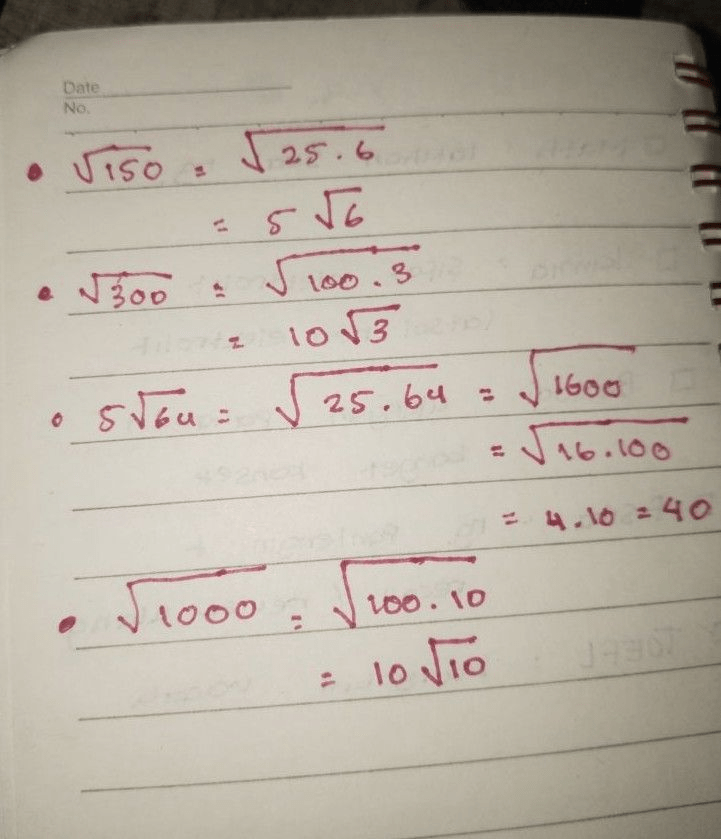 Date
No.
• √150 = √25.6
= 5 √6
• √300 = √100.3
= 10 √3
• 5√64 = √25.64 = √1600
= √16.100
= 4.10 = 40
• √1000 = √100.10
= 10 √10